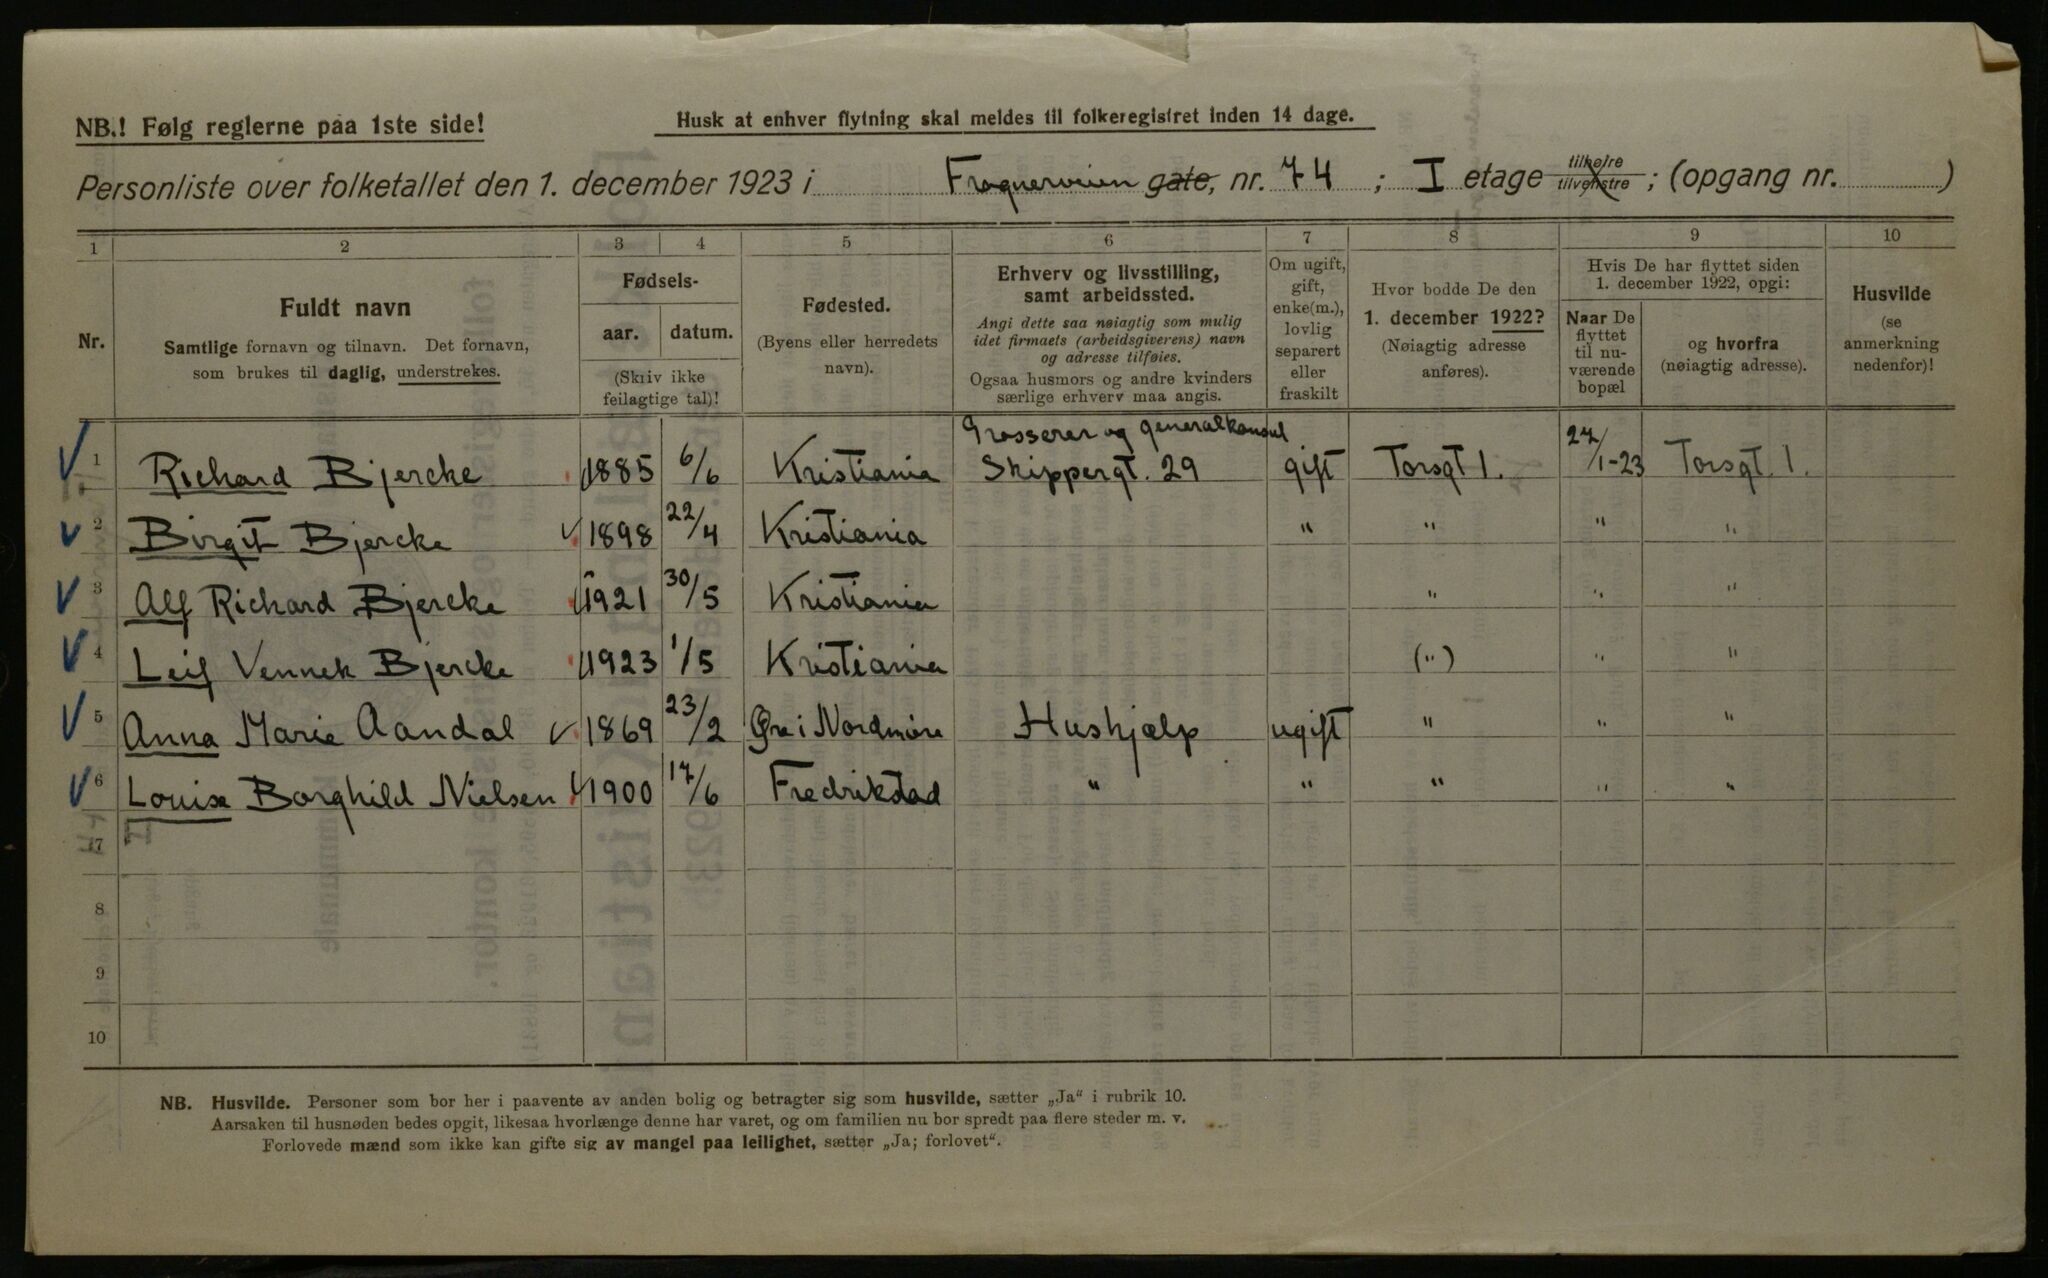 NB.! Følg reglerne paa 1ste side!
Husk at enhver flytning skal meldes til folkeregistret inden 14 dage.
Personliste over folketallet den 1. december 1923 i Frognerveien gate, nr. 74 ; I etage tilhøire tilvenstre ; (opgang nr. )
1 2 3 4 5 6 7 8 9 10
Nr.
Fuldt navn
Samtlige fornavn og tilnavn. Det fornavn,
som brukes til daglig, understrekes.
Fødsels-
aar. datum.
(Skriv ikke
feilagtige tal)!
Fødested.
(Byens eller herredets
navn).
Erhverv og livsstilling,
samt arbeidssted.
Angi dette saa nøiagtig som mulig
idet firmaets (arbeidsgiverens) navn
og adresse tilføies.
Ogsaa husmors og andre kvinders
særlige erhverv maa angis.
Om ugift,
gift,
enke(m.),
lovlig
separert
eller
fraskilt
Hvor bodde De den
1. december 1922?
(Nøiagtig adresse
anføres).
Hvis De har flyttet siden
1. december 1922, opgi:
Naar De
flyttet
til nu-
værende
bopæl
og hvorfra
(nøiagtig adresse).
Husvilde
(se
anmerkning
nedenfor)!
Grosserer og generalkonsul
1 Richard Bjercke 1885 6/6 Kristiania Skippergt. 29 gift Torsgt 1. 27/1-23 Torsgt. 1.
2 Birgit Bjercke 1898 22/4 Kristiania " " " "
3 Alf Richard Bjercke 1921 30/5 Kristiania " " "
4 Leif Vennek Bjercke 1923 1/5 Kristiania (") " "
5 Anna Marie Aandal 1869 23/2 Øre i Nordmøre Hushjælp ugift " " "
6 Louise Borghild Nielsen 1900 17/6 Fredrikstad " " " " "
7
8
9
10
NB. Husvilde. Personer som bor her i paavente av anden bolig og betragter sig som husvilde, sætter „Ja“ i rubrik 10.
Aarsaken til husnøden bedes opgit, likesaa hvorlænge denne har varet, og om familien nu bor spredt paa flere steder m. v.
Forlovede mænd som ikke kan gifte sig av mangel paa leilighet, sætter „Ja; forlovet“.